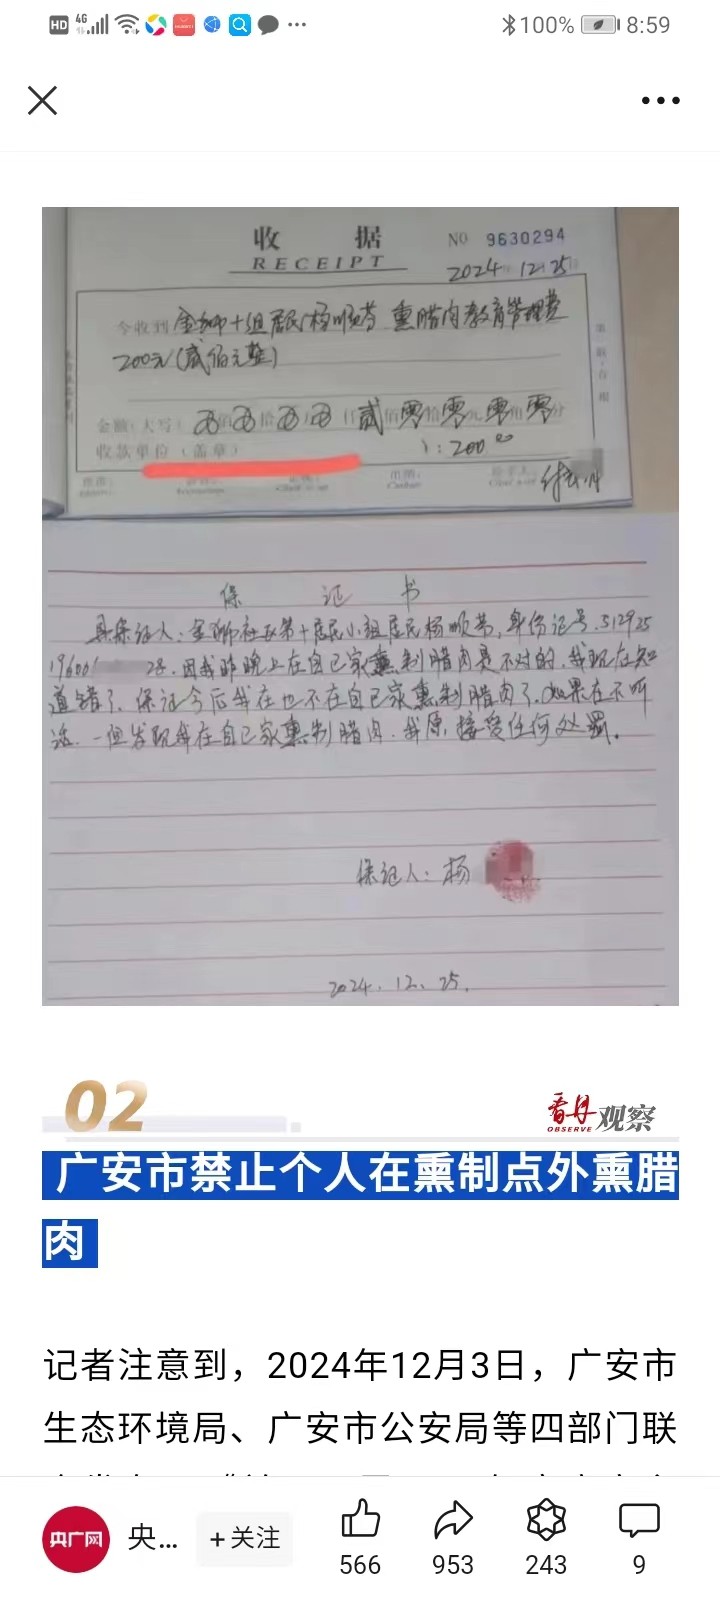 HD 4G 100% 8:59
收 据
RECEIPT
NO 9630294
2024年12月25日
今收到 金狮十组居民杨顺芳 熏腊肉教育管理费
200元(贰佰元整)
金额(大写) 贰佰零拾零元零角零分
收款单位(盖章)
¥:200.00
保 证 书
具保证人:金狮社区第十居民小组居民杨顺芳,身份证号:512925
19600 28.因我昨晚上在自己家熏制腊肉是不对的.我现在知
道错了、保证今后我在也不在自己家熏制腊肉了.如果在不听
话.一但发现我在自己家熏制腊肉.我原接受任何处罚。
保证人:杨
2024.12.25.
02
OBSERVE 观察
广安市禁止个人在熏制点外熏腊
肉
记者注意到,2024年12月3日,广安市
生态环境局、广安市公安局等四部门联
央广网 央... +关注
566 953 243 9